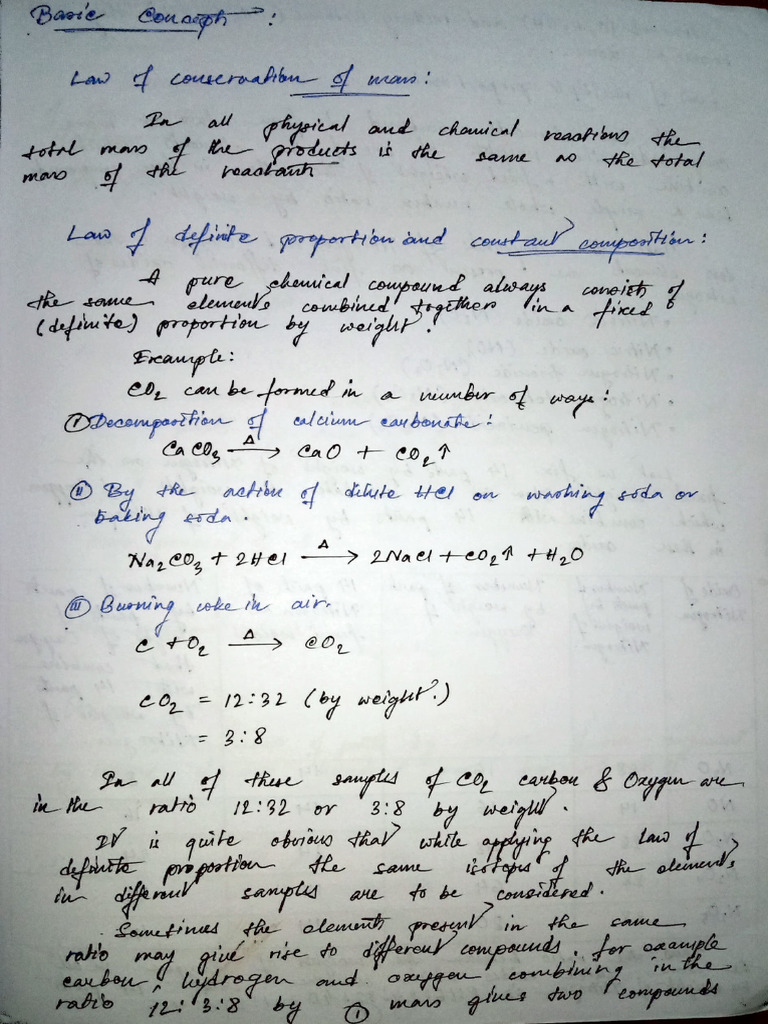 Basic Concept :
Law of conservation of mass :
In all physical and chemical reactions the
total mass of the products is the same as the total
mass of the reactants
Law of definite proportion and constant composition :
A pure chemical compound always consists of
the same elements combined together in a fixed
(definite) proportion by weight.
Example:
CO₂ can be formed in a number of ways :
(I) Decomposition of calcium carbonate :
CaCO₃ —Δ→ CaO + CO₂↑
(II) By the action of dilute HCl on washing soda or
baking soda.
Na₂CO₃ + 2HCl —Δ→ 2NaCl + CO₂↑ + H₂O
(III) Burning coke in air.
C + O₂ —Δ→ CO₂
CO₂ = 12:32 (by weight.)
= 3:8
In all of these samples of CO₂ carbon & Oxygen are
in the ratio 12:32 or 3:8 by weight.
It is quite obvious that while applying the Law of
definite proportion the same isotopes of the elements
in different samples are to be considered.
Sometimes the elements present in the same
ratio may give rise to different compounds. for example
carbon, hydrogen and oxygen combining in the
ratio 12: 3:8 by mass gives two compounds
(1)